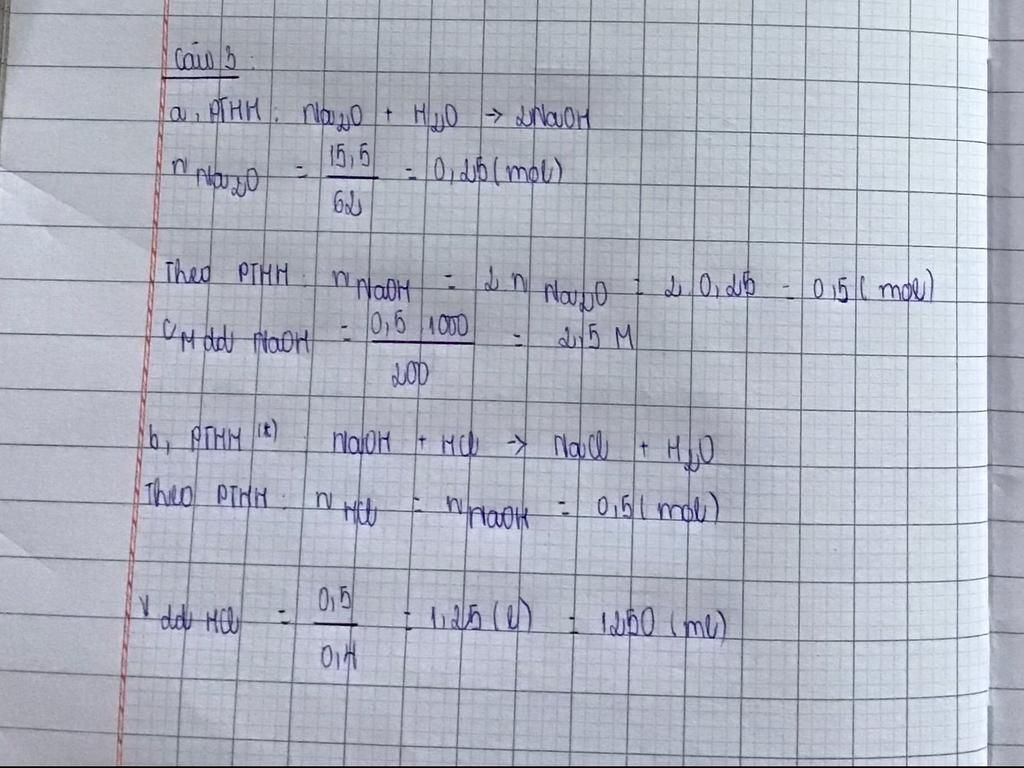 Câu 3:
a, PTHH: Na₂O + H₂O → 2NaOH
n Na₂O = 15,5 / 62 = 0,25 (mol)
Theo PTHH: n NaOH = 2 n Na₂O = 2.0,25 = 0,5 (mol)
C M dd NaOH = 0,5.1000 / 200 = 2,5 M
b, PTHH (*) NaOH + HCl → NaCl + H₂O
Theo PTHH: n HCl = n NaOH = 0,5 (mol)
V dd HCl = 0,5 / 0,4 = 1,25 (l) = 1250 (ml)